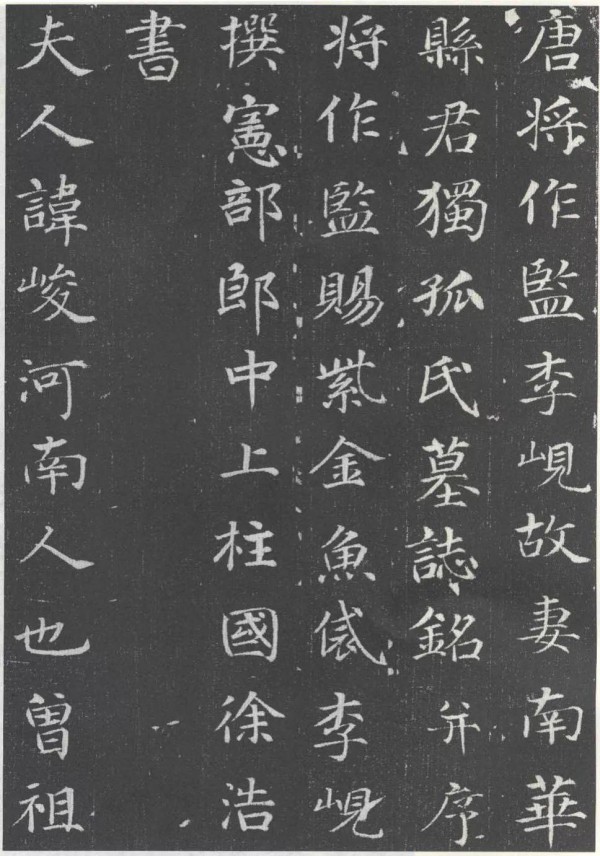 唐将作監李峴故妻南華
縣君獨孤氏墓誌銘并序
将作監賜紫金魚袋李峴
撰憲部郎中上柱國徐浩
書
夫人諱峻河南人也曾祖